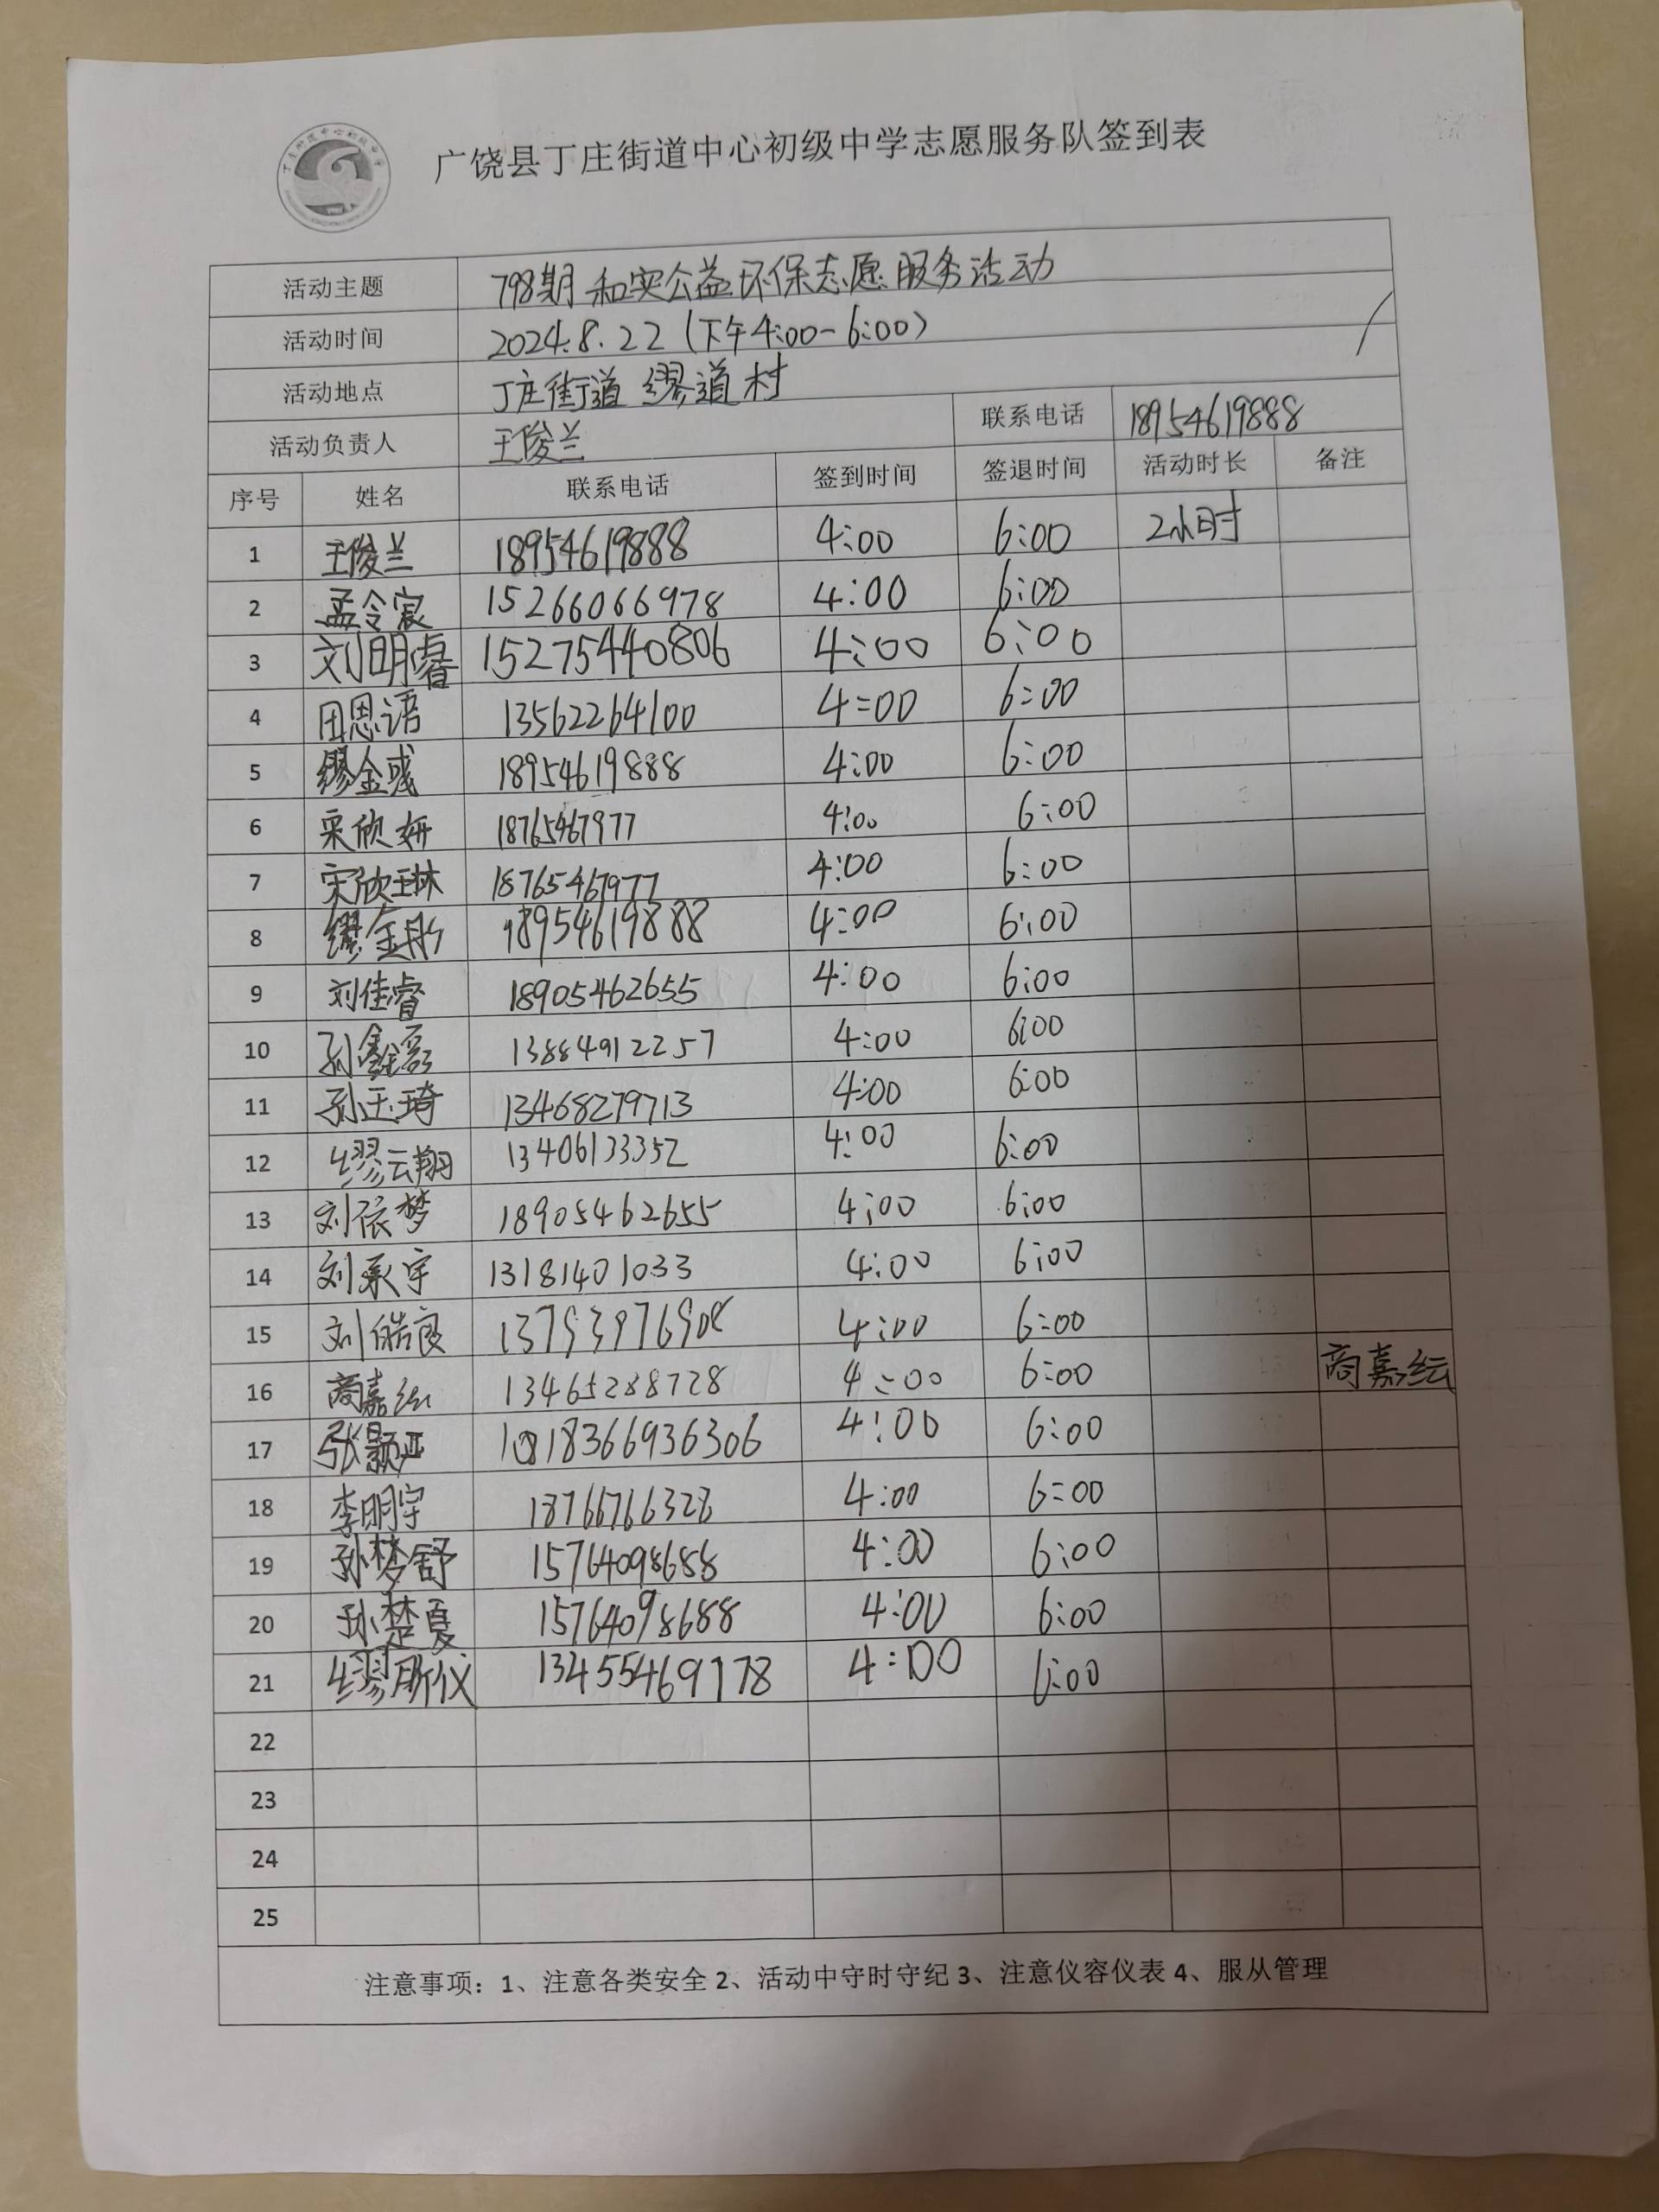 广饶县丁庄街道中心初级中学志愿服务队签到表
活动主题 798期 和实公益环保志愿服务活动
活动时间 2024.8.22（下午4:00-6:00）
活动地点 丁庄街道 缪道村
活动负责人 王俊兰 联系电话 18954619888
序号 姓名 联系电话 签到时间 签退时间 活动时长 备注
1 王俊兰 18954619888 4:00 6:00 2小时
2 孟令宸 15266066978 4:00 6:00
3 刘明睿 15275440806 4:00 6:00
4 田恩语 13562264100 4:00 6:00
5 缪金彧 18954619888 4:00 6:00
6 宋欣妍 18765467977 4:00 6:00
7 宋欣琳 18765467977 4:00 6:00
8 缪金彤 18954619888 4:00 6:00
9 刘佳睿 18905462655 4:00 6:00
10 孙鑫磊 13884912257 4:00 6:00
11 孙玉琦 13468279713 4:00 6:00
12 缪云翔 13406133352 4:00 6:00
13 刘依梦 18905462655 4:00 6:00
14 刘承宇 13181401033 4:00 6:00
15 刘皓良 13793976908 4:00 6:00
16 商嘉纭 13465288728 4:00 6:00 商嘉纭
17 张颢严 18366936306 4:00 6:00
18 李明宇 18766766328 4:00 6:00
19 孙梦舒 15764098688 4:00 6:00
20 孙楚夏 15764098688 4:00 6:00
21 缪所仪 13455469178 4:00 6:00
22
23
24
25
注意事项：1、注意各类安全 2、活动中守时守纪 3、注意仪容仪表 4、服从管理